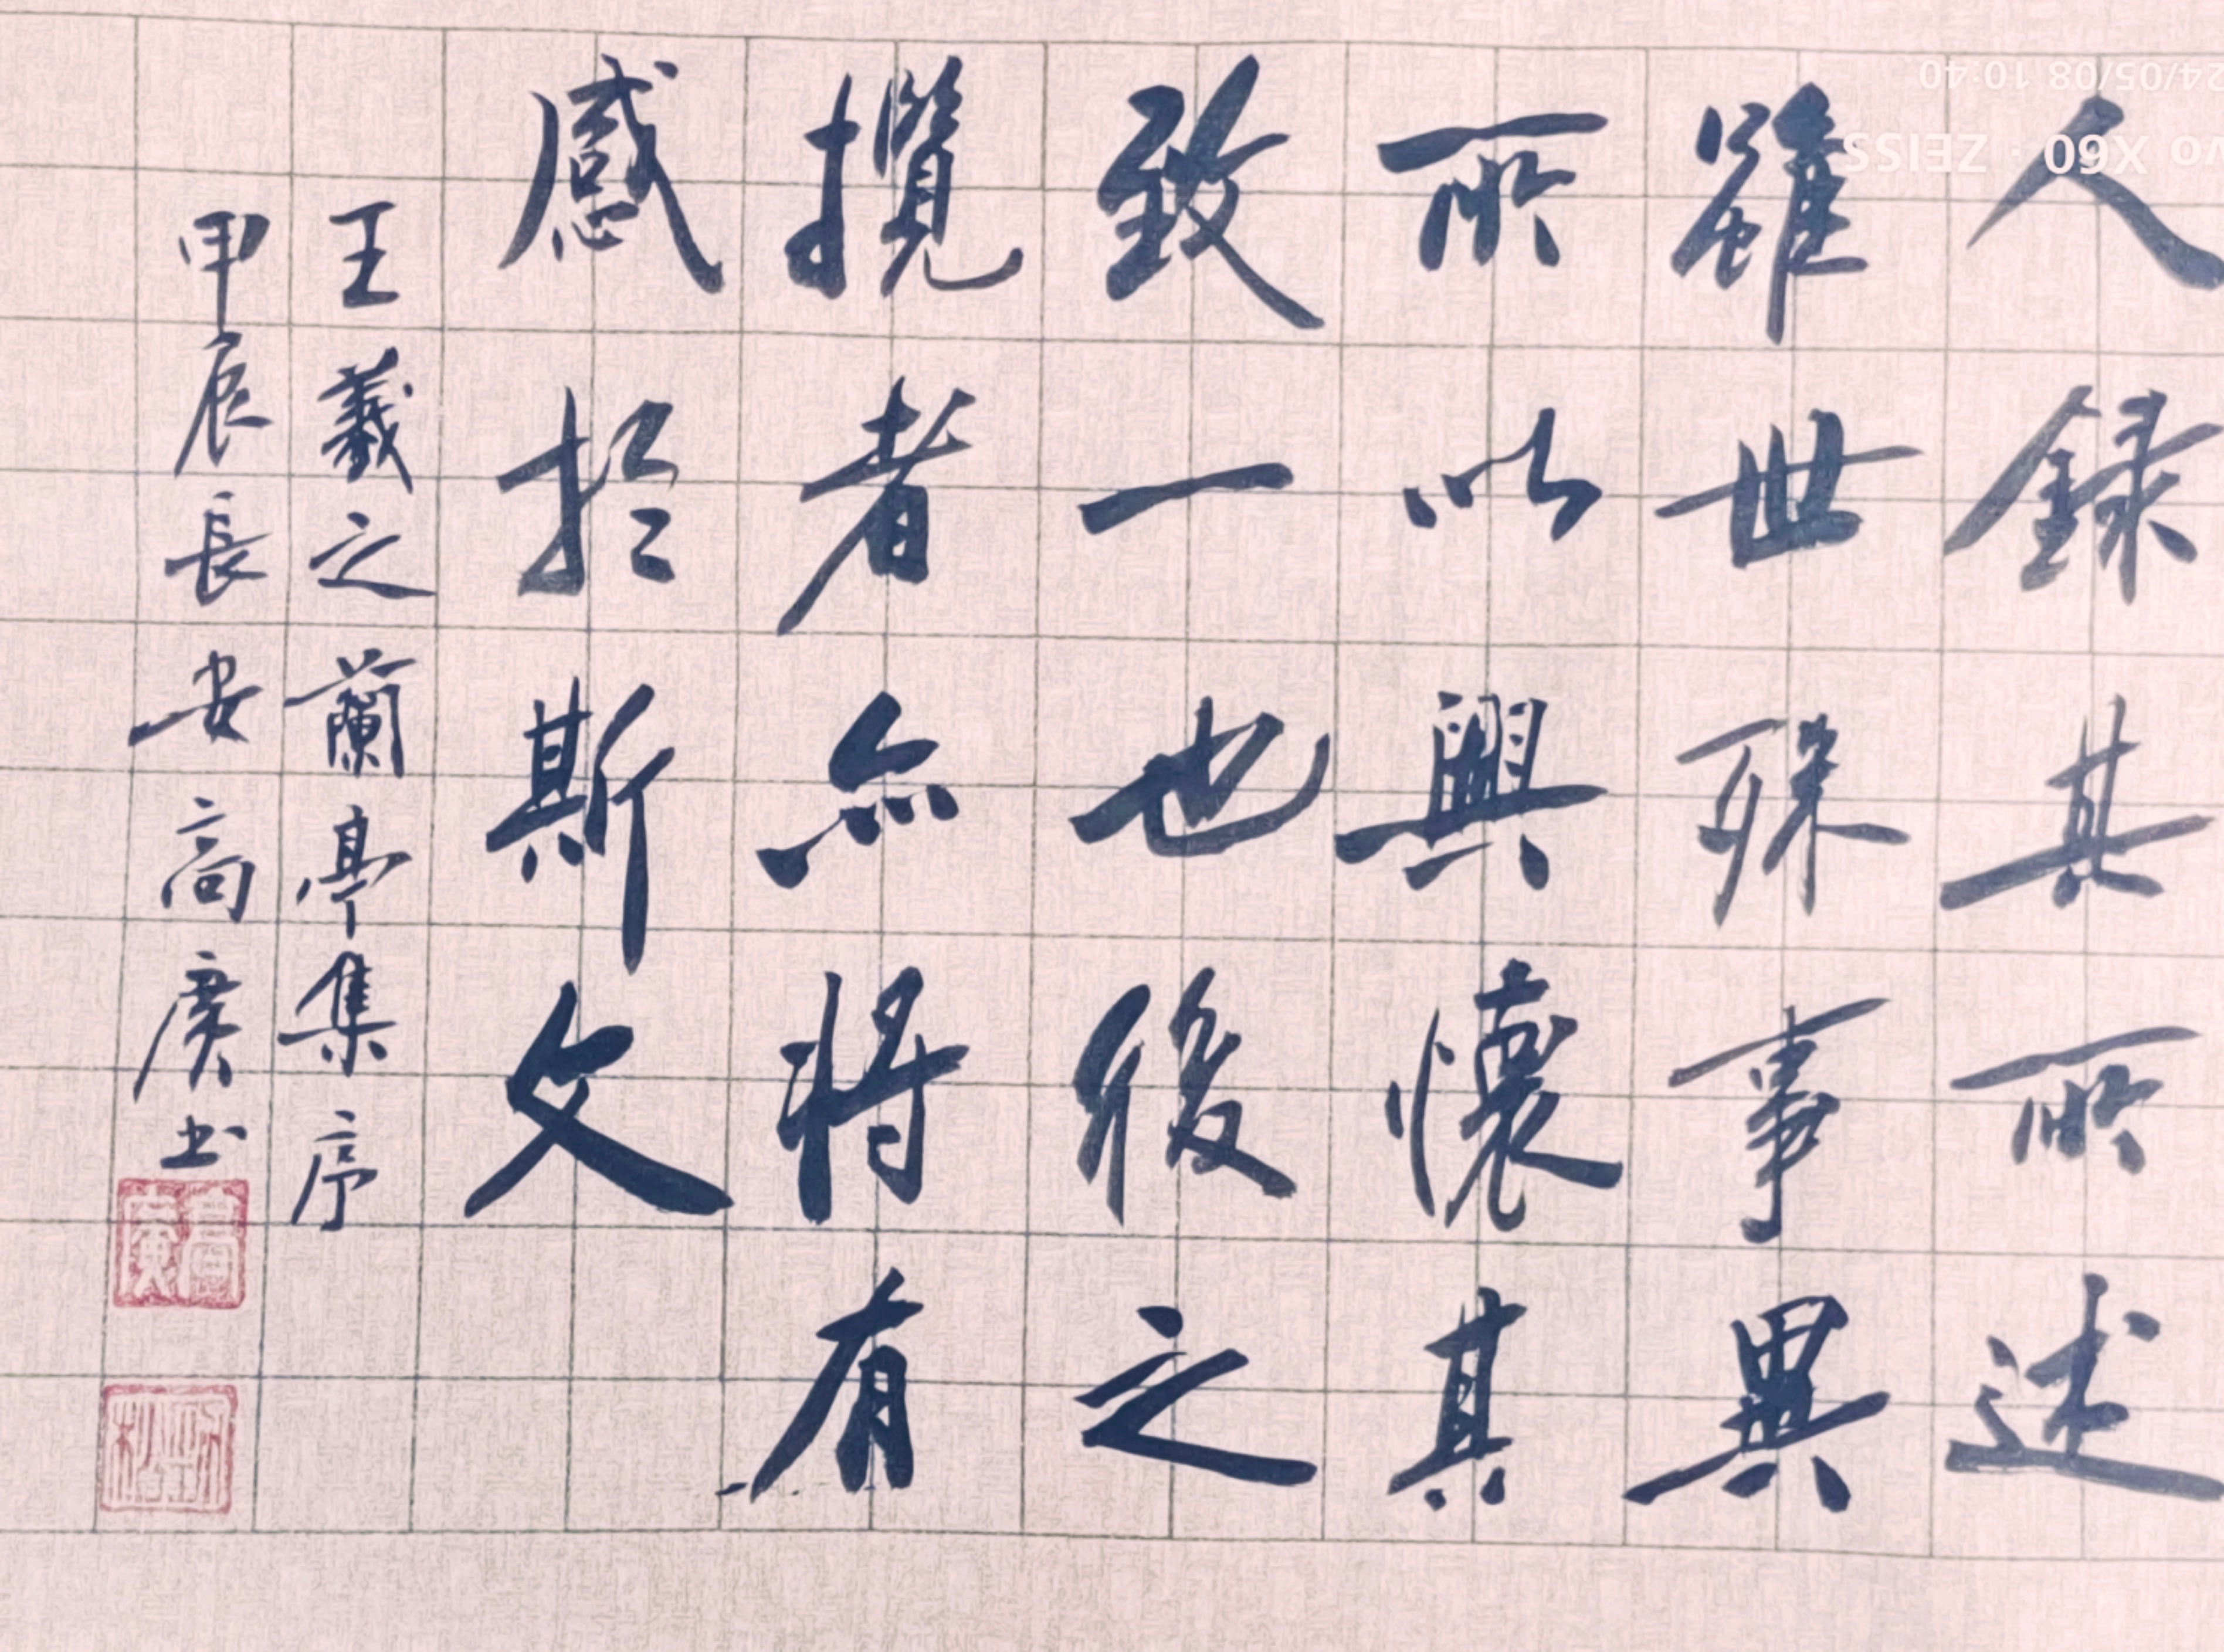 人録其所述
雖世殊事異
所以興懷其
致一也後之
攬者亦將有
感於斯文
王羲之蘭亭集序
甲辰長安高廣书
24/05/08 10:40
vo X60 · ZEISS